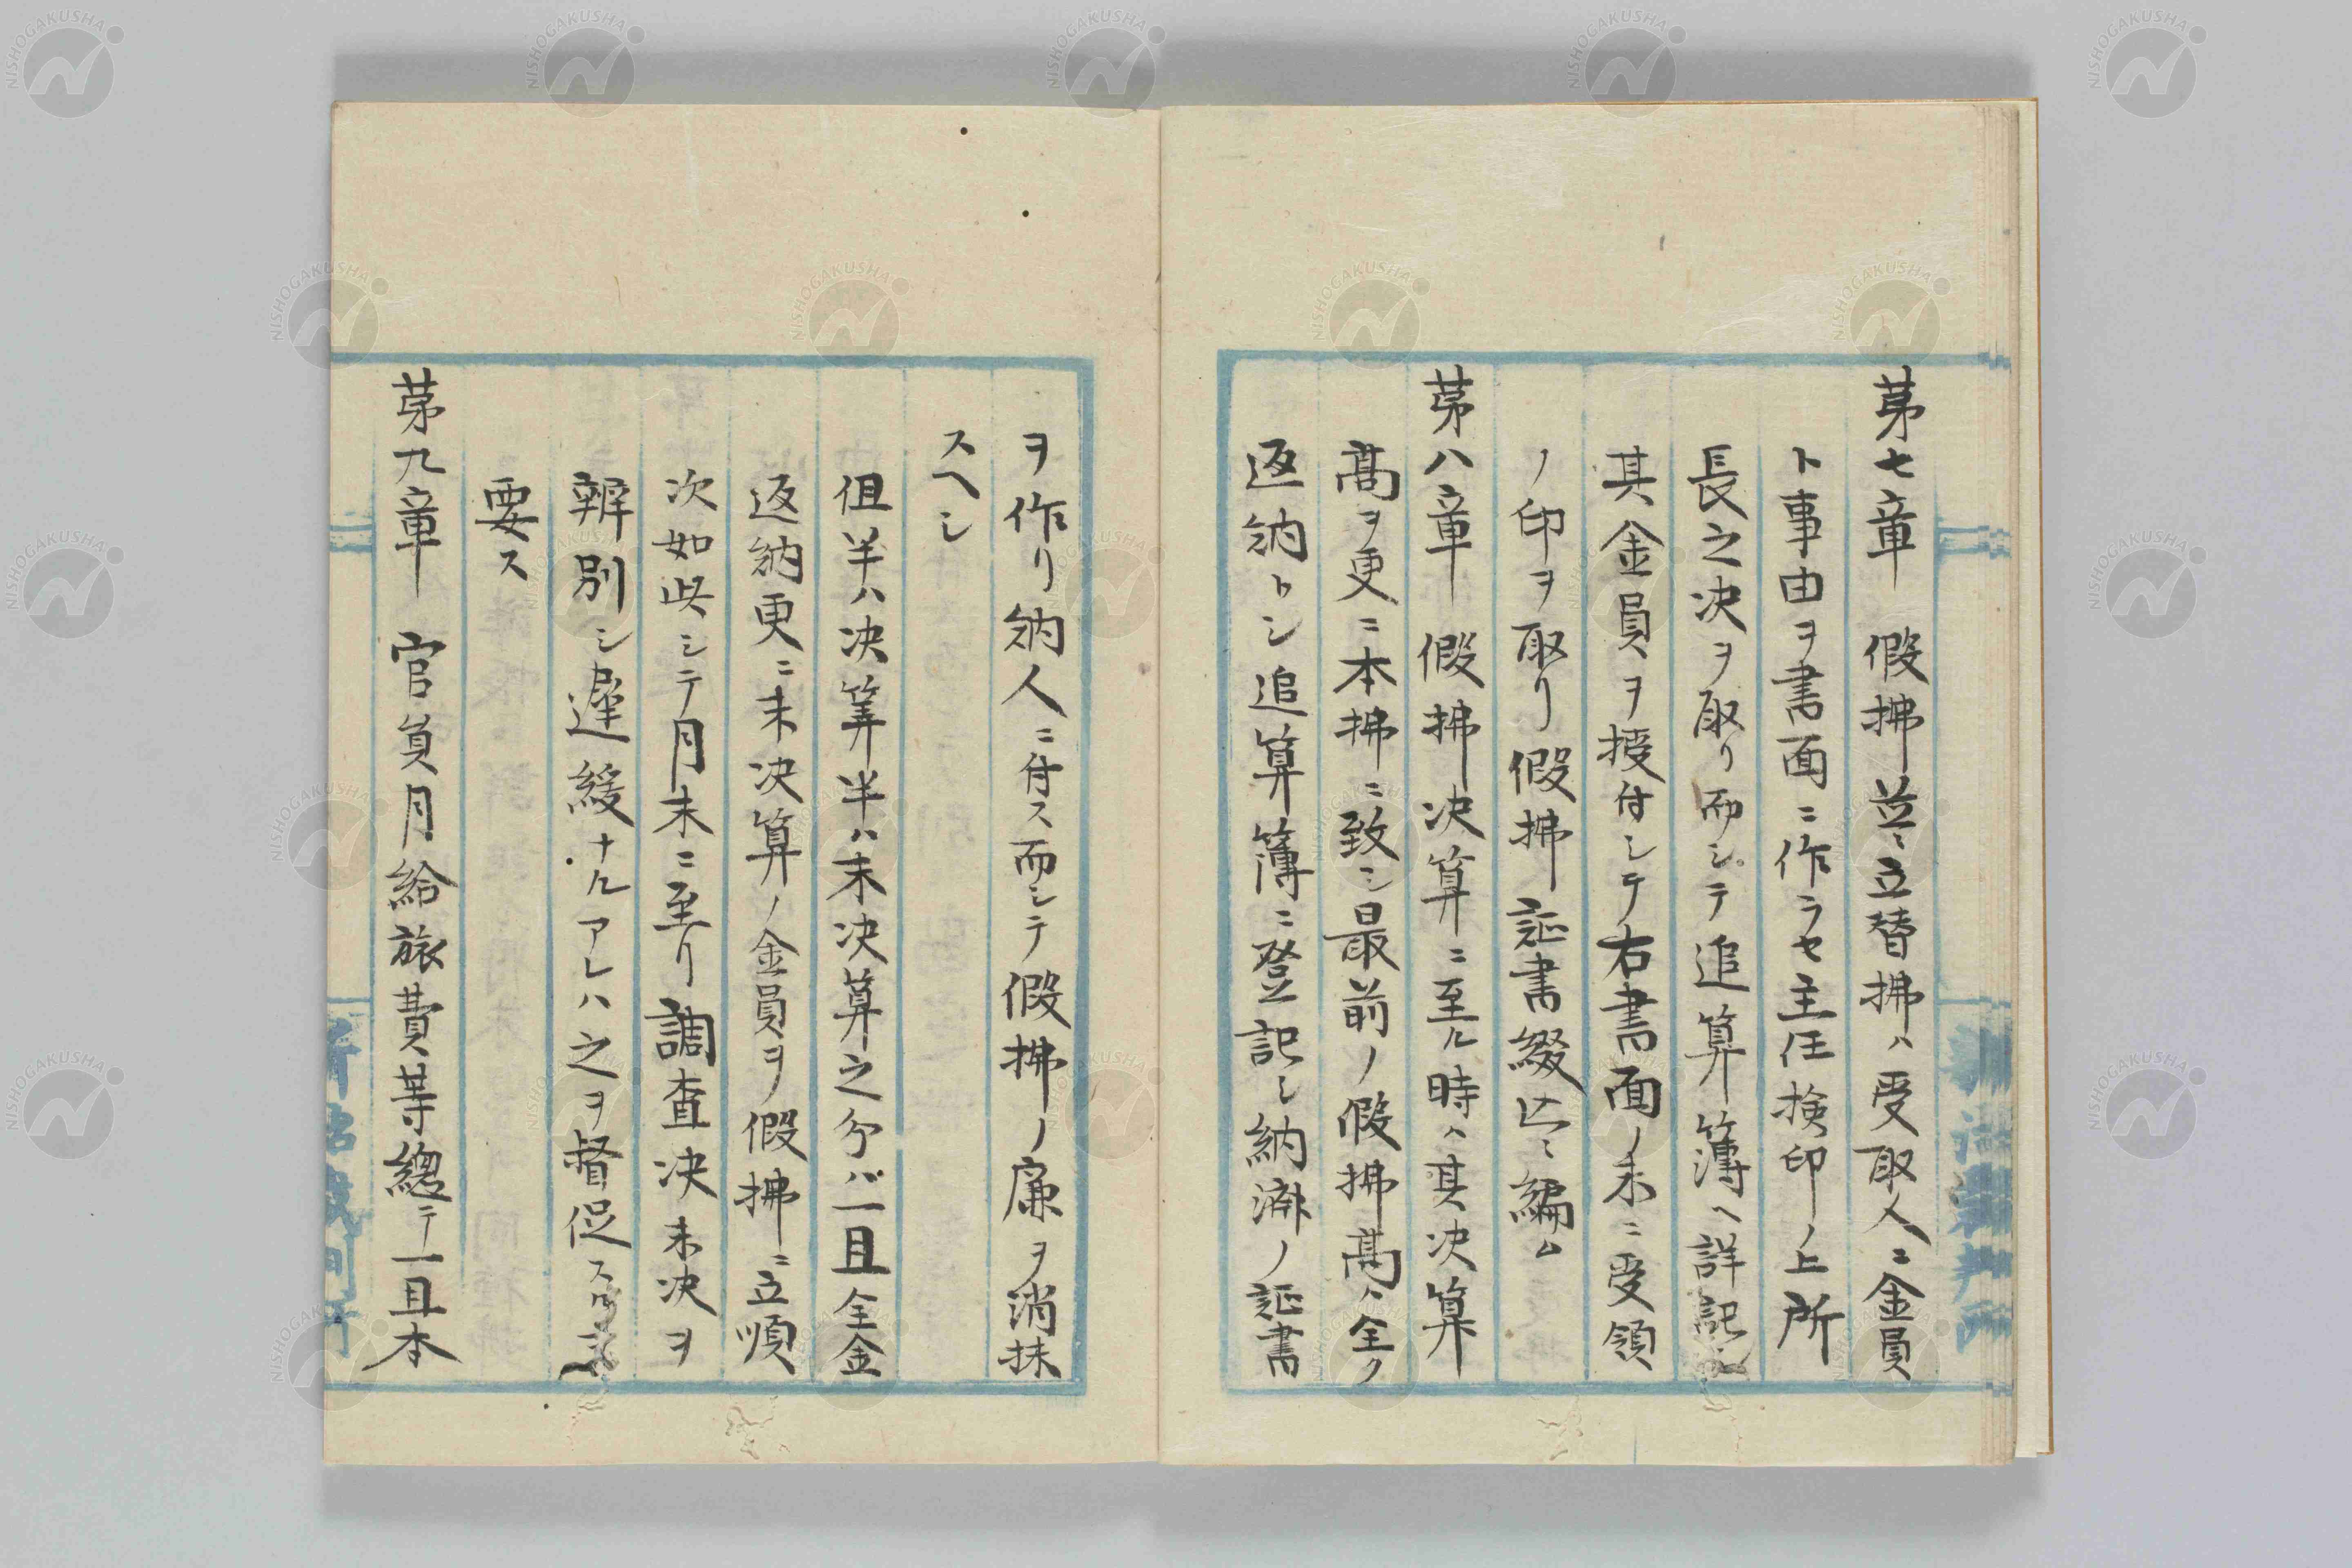 第七章 假拂並ニ立替拂ハ受取人ニ金員
ト事由ヲ書面ニ作ラセ主任検印ノ上所
長之決ヲ取リ而シテ追算簿ヘ詳記シ
其金員ヲ授付シテ右書面ノ末ニ受領
ノ印ヲ取リ假拂証書綴込ニ編ム
第八章 假拂决算ニ至ル時ハ其决算
髙ヲ更ニ本拂ニ致シ最前ノ假拂髙ハ全ク
返納トシ追算簿ニ登記シ納済ノ証書
ヲ作リ納人ニ付ス而シテ假拂ノ廉ヲ消抹
スヘシ
但半ハ决算半ハ未决算之分バ一旦全金
返納更ニ未决算ノ金員ヲ假拂ニ立順
次如此シテ月末ニ至リ調査决未决ヲ
辨別シ遅緩ナルアレハ之ヲ督促スルヲ
要ス
第九章 官員月給旅費等總テ一旦本
NISHOGAKUSHA